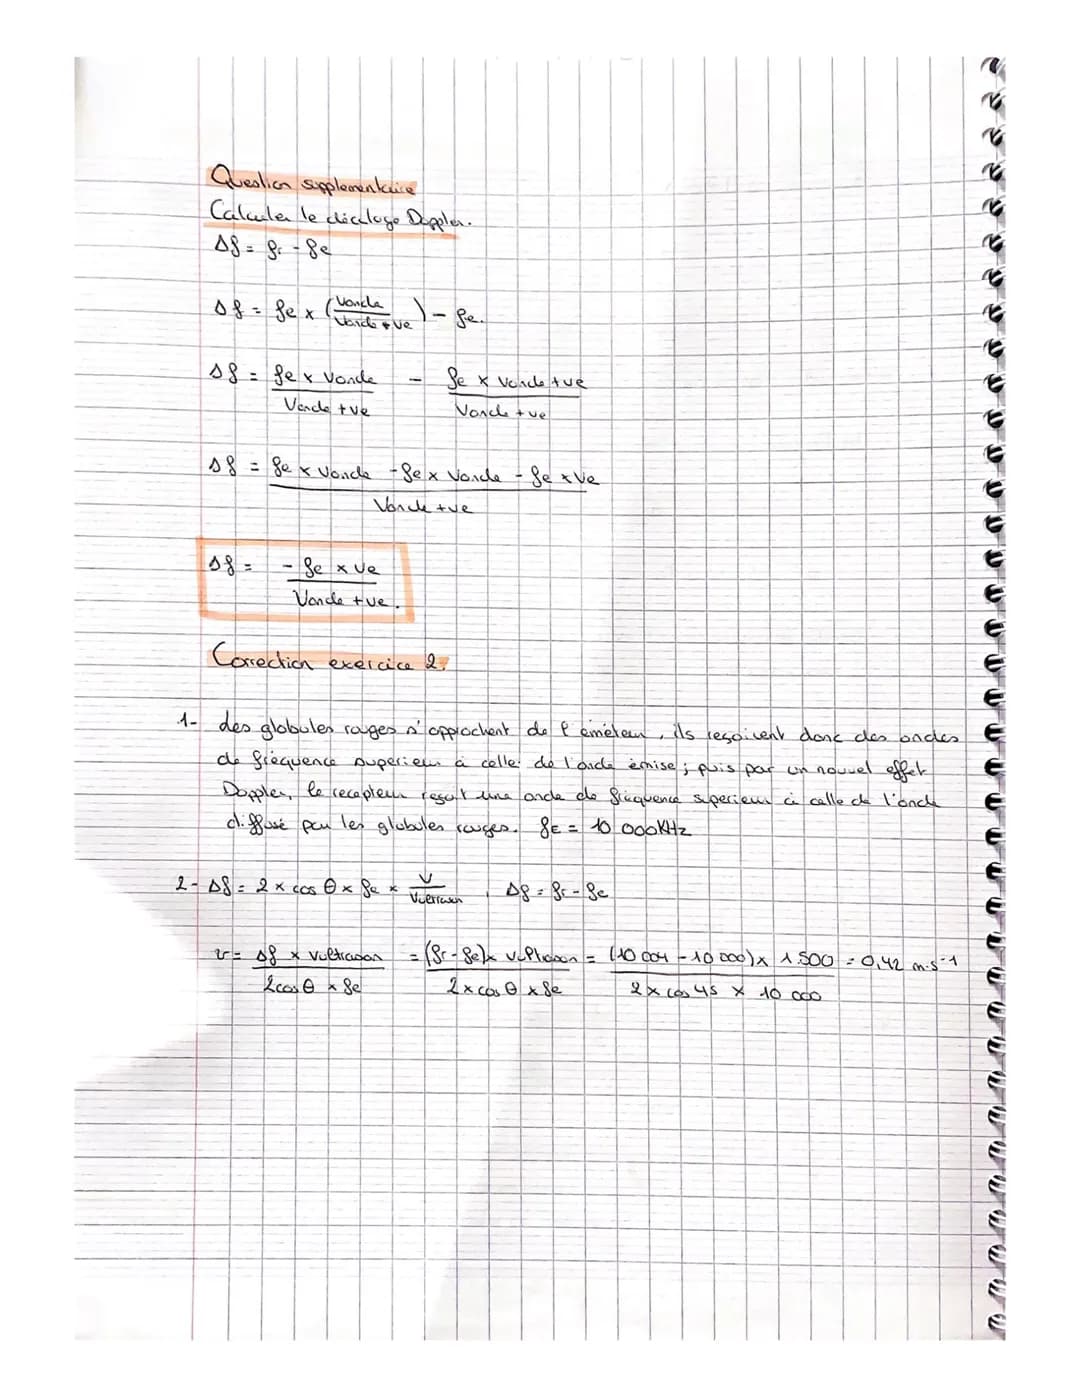 Question supplementaire
Calculer le décalage Doppler.
Δf = fr - fe
Δf = fe x (Vonde / Vonde + ve) - fe.
Δf = fe x Vonde / Vonde + ve - fe x Vonde + ve / Vonde + ve
Δf = fe x Vonde - fe x Vonde - fe x Ve / Vonde + ve
Δf = - fe x ve / Vonde + ve.
Correction exercice 2.
1- des globules rouges s'approchent de l'émeteur, ils reçoivent donc des ondes
de fréquence superieur à celle de l'onde émise ; puis par un nouvel effet
Doppler, le recepteur reçoit une onde de fréquence superieur à celle de l'onde
diffusé par les globules rouges. fE = 10 000KHz
2- Δf = 2 x cos θ x fe x V / , Δf = fr - fe
v = Δf x Vultrason / 2cos θ x fe = (fr - fe) x / 2 x cos θ x fe = (10 004 - 10 000) x 1.500 / 2 x cos 45 x 10 000 = 0,42 m.s-1